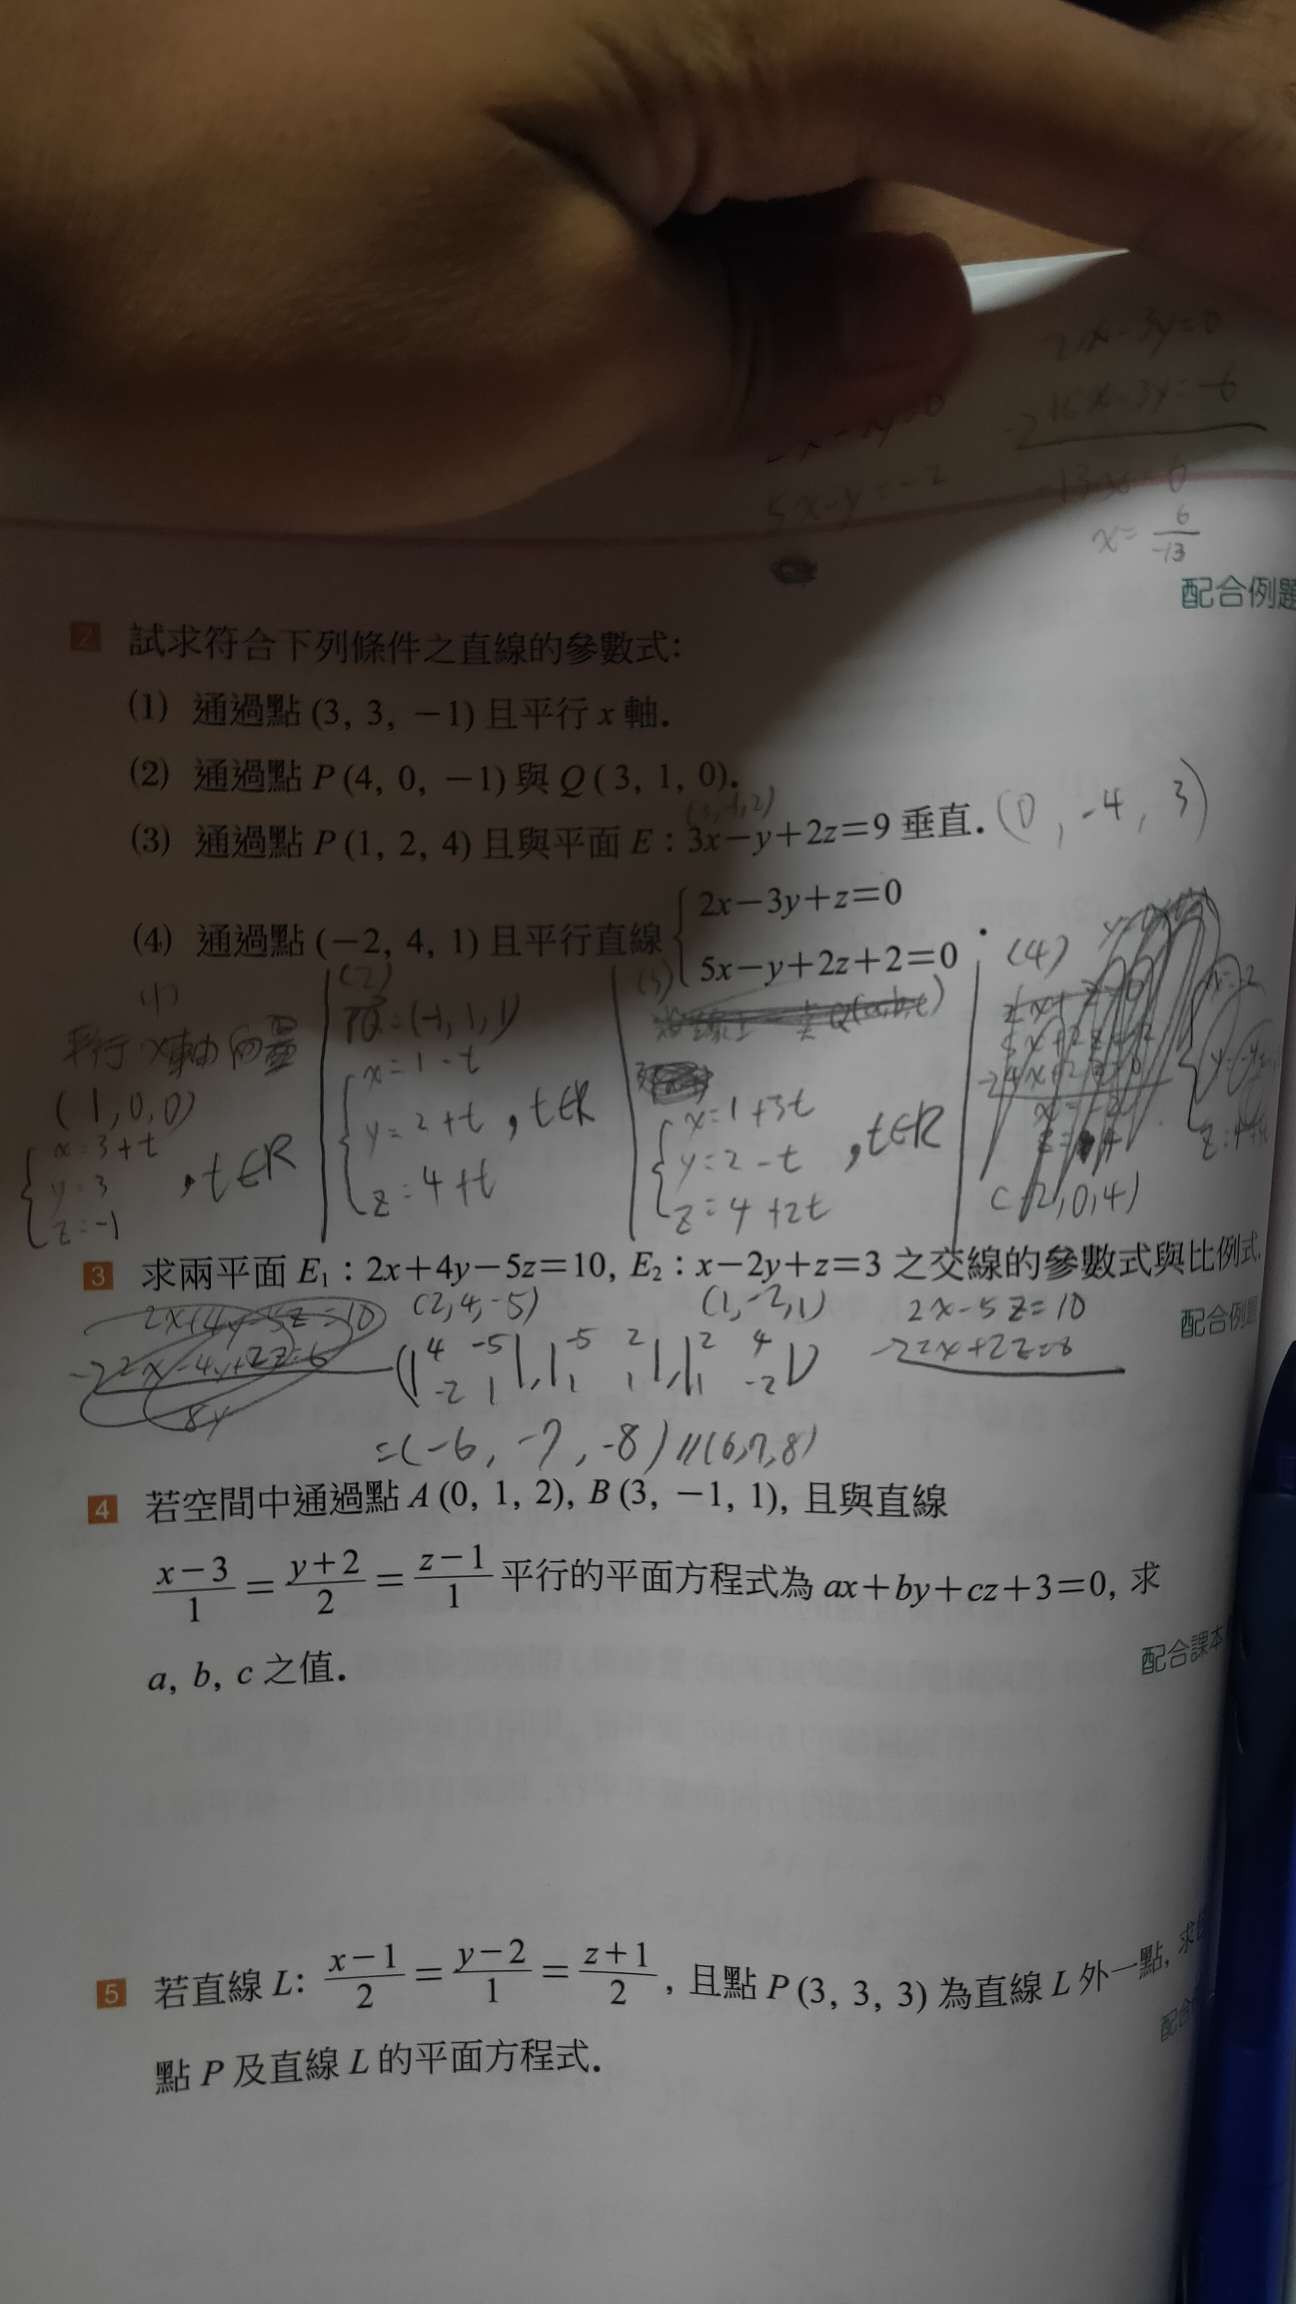 21x-3y=0
5x-y=-2
x=6/-13
配合例題
2 試求符合下列條件之直線的參數式:
(1) 通過點 (3, 3, −1) 且平行 x 軸.
(2) 通過點 P (4, 0, −1) 與 Q ( 3, 1, 0).
(3,-1,2)
(3) 通過點 P (1, 2, 4) 且與平面 E : 3x−y+2z=9 垂直. (0, -4, 3)
(4) 通過點 (−2, 4, 1) 且平行直線 { 2x−3y+z=0
5x−y+2z+2=0 .
(1)
平行 x軸 向量
(1,0,0)
x=3+t
y=3 , t∈R
z=-1
(2)
PQ=(-1,1,1)
x=1-t
y=2+t , t∈R
z=4+t
(3)
Q(a,b,c)
x=1+3t
y=2-t , t∈R
z=4+2t
(4)
(-2,0,4)
3 求兩平面 E₁ : 2x+4y−5z=10, E₂ : x−2y+z=3 之交線的參數式與比例式.
配合例題
2x+4y-5z=10
-) 2x-4y+2z=6
8y
(2,4,-5) (1,-2,1)
(|4 -5|, |-5 2|, |2 4|)
|-2 1| |1 1| |1 -2|
=(-6, -7, -8) // (6,7,8)
2x-5z=10
-) 2x+2z=6
4 若空間中通過點 A (0, 1, 2), B (3, −1, 1), 且與直線
x−3/1 = y+2/2 = z−1/1 平行的平面方程式為 ax+by+cz+3=0, 求
a, b, c 之值.
配合課本
5 若直線 L: x−1/2 = y−2/1 = z+1/2 , 且點 P (3, 3, 3) 為直線 L 外一點, 求
點 P 及直線 L 的平面方程式.
配合